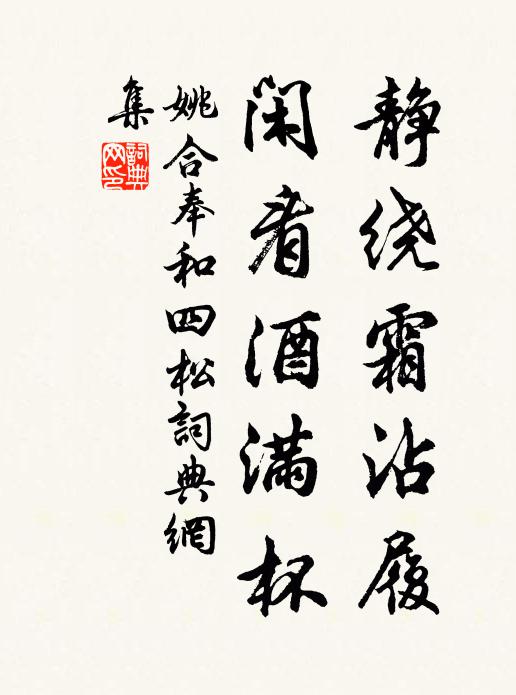 静绕霜沾履
闲看酒满杯
姚合奉和四松詞典網
集
詞典网印